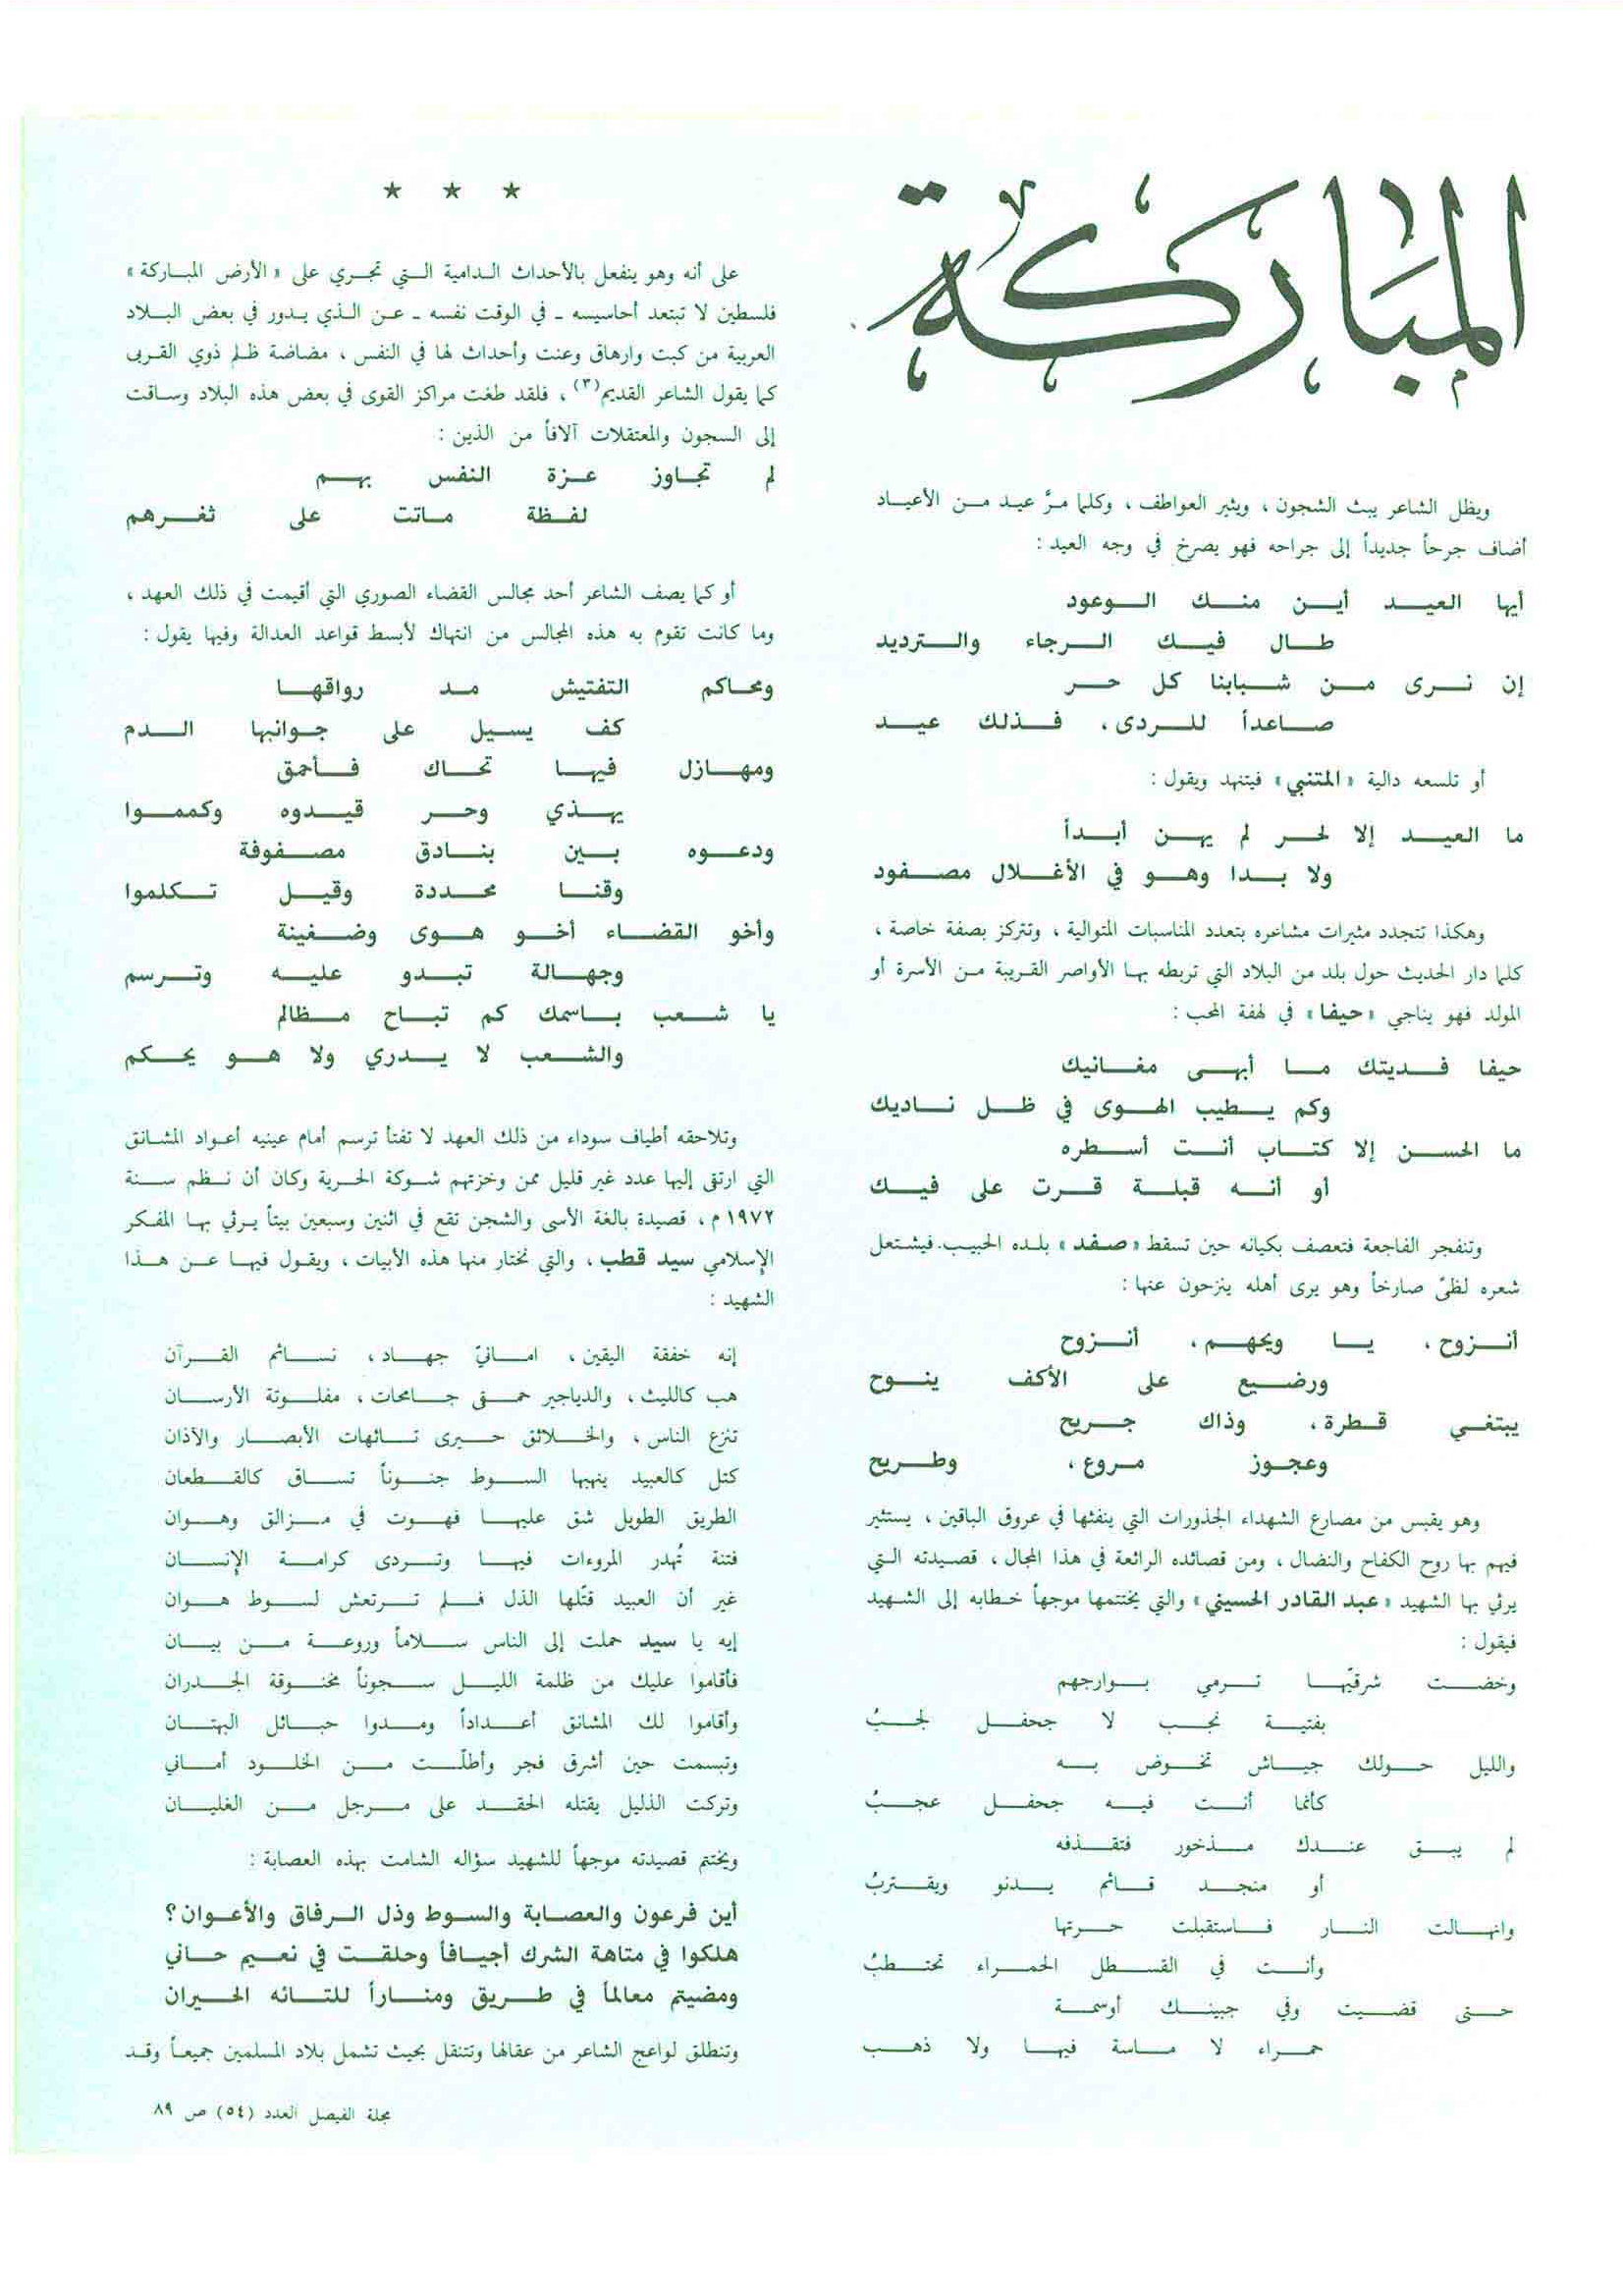 المباركة
ويظل الشاعر يبث الشجون ، ويثير العواطف ، وكلما مرَّ عيد من الأعياد
أضاف جرحاً جديداً إلى جراحه فهو يصرخ في وجه العيد :
أيها العيد أين منك الوعود
طال فيك الرجاء والترديد
إن نرى من شبابنا كل حر
صاعداً للردى ، فذلك عيد
أو تلسعه دالية « المتنبي » فيتنهد ويقول :
ما العيد إلا لحر لم يهن أبداً
ولا بدا وهو في الأغلال مصفود
وهكذا تتجدد مثيرات مشاعره بتعدد المناسبات المتوالية ، وتتركز بصفة خاصة ،
كلما دار الحديث حول بلد من البلاد التي تربطه بها الأواصر القريبة من الأسرة أو
المولد فهو يناجي « حيفا » في لهفة المحب :
حيفا فديتك ما أبهى مغانيك
وكم يطيب الهوى في ظل ناديك
ما الحسن إلا كتاب أنت أسطره
أو أنه قبلة قرت على فيك
وتنفجر الفاجعة فتعصف بكيانه حين تسقط « صفد » بلده الحبيب . فيشتعل
شعره لظىً صارخاً وهو يرى أهله ينزحون عنها :
أنزوح ، يا ويحهم ، أنزوح
ورضيع على الأكف ينوح
يبتغي قطرة ، وذاك جريح
وعجوز مروع ، وطريح
وهو يقبس من مصارع الشهداء الجذورات التي ينفثها في عروق الباقين ، يستثير
فيهم بها روح الكفاح والنضال ، ومن قصائده الرائعة في هذا المجال ، قصيدته التي
يرثي بها الشهيد « عبد القادر الحسيني » والتي يختتمها موجهاً خطابه إلى الشهيد
فيقول :
وخضت شرقيّها ترمي بوارجهم
بفتية نجب لا جحفل لجبُ
والليل حولك جياش تخوض به
كأنما أنت فيه جحفل عجبُ
لم يبق عندك مذخور فتقذفه
أو منجد قائم يدنو ويقتربُ
وانهالت النار فاستقبلت حرتها
وأنت في القسطل الحمراء تختطبُ
حتى قضيت وفي جبينك أوسمة
حمراء لا ماسة فيها ولا ذهب
★ ★ ★
على أنه وهو ينفعل بالأحداث الدامية التي تجري على « الأرض المباركة »
فلسطين لا تبتعد أحاسيسه ـ في الوقت نفسه ـ عن الذي يدور في بعض البلاد
العربية من كبت وارهاق وعنت وأحداث لها في النفس ، مضاضة ظلم ذوي القربى
كما يقول الشاعر القديم(٣) ، فلقد طغت مراكز القوى في بعض هذه البلاد وساقت
إلى السجون والمعتقلات آلافاً من الذين :
لم تجاوز عزة النفس بهم
لفظة ماتت على ثغرهم
أو كما يصف الشاعر أحد مجالس القضاء الصوري التي أقيمت في ذلك العهد ،
وما كانت تقوم به هذه المجالس من انتهاك لأبسط قواعد العدالة وفيها يقول :
ومحاكم التفتيش مد رواقها
كف يسيل على جوانبها الدم
ومهازل فيها تحاك فأحمق
يهذي وحر قيدوه وكمموا
ودعوه بين بنادق مصفوفة
وقنا محددة وقيل تكلموا
وأخو القضاء أخو هوى وضغينة
وجهالة تبدو عليه وترسم
يا شعب باسمك كم تباح مظالم
والشعب لا يدري ولا هو يحكم
وتلاحقه أطياف سوداء من ذلك العهد لا تفتأ ترسم أمام عينيه أعواد المشانق
التي ارتقى إليها عدد غير قليل ممن وخزتهم شوكة الحرية وكان أن نظم سنة
١٩٧٢ م ، قصيدة بالغة الأسى والشجن تقع في اثنين وسبعين بيتاً يرثي بها المفكر
الإسلامي سيد قطب ، والتي نختار منها هذه الأبيات ، ويقول فيها عن هذا
الشهيد :
إنه خفقة اليقين ، امانيّ جهاد ، نسائم القرآن
هب كالليث ، والدياجير حمقى جامحات ، مفلوتة الأرسان
تنزع الناس ، والخلائق حيرى تائهات الأبصار والآذان
كتل كالعبيد ينهبها السوط جنوناً تساق كالقطعان
الطريق الطويل شق عليها فهوت في مزالق وهوان
فتنة تُهدر المروءات فيها وتردى كرامة الإنسان
غير أن العبيد قتّلها الذل فلم ترتعش لسوط هوان
إيه يا سيد حملت إلى الناس سلاماً وروعة من بيان
فأقاموا عليك من ظلمة الليل سجوناً مخنوقة الجدران
وأقاموا لك المشانق أعداداً ومدوا حبائل البهتان
وتبسمت حين أشرق فجر وأطلّت من الخلود أماني
وتركت الذليل يقتله الحقد على مرجل من الغليان
ويختتم قصيدته موجهاً للشهيد سؤاله الشامت بهذه العصابة :
أين فرعون والعصابة والسوط وذل الرفاق والأعوان ؟
هلكوا في متاهة الشرك أجيافاً وحلقت في نعيم حاني
ومضيتم معالماً في طريق ومناراً للتائه الحيران
وتنطلق لواعج الشاعر من عقالها وتتنقل بحيث تشمل بلاد المسلمين جميعاً وقد
مجلة الفيصل العدد (٥٤) ص ٨٩